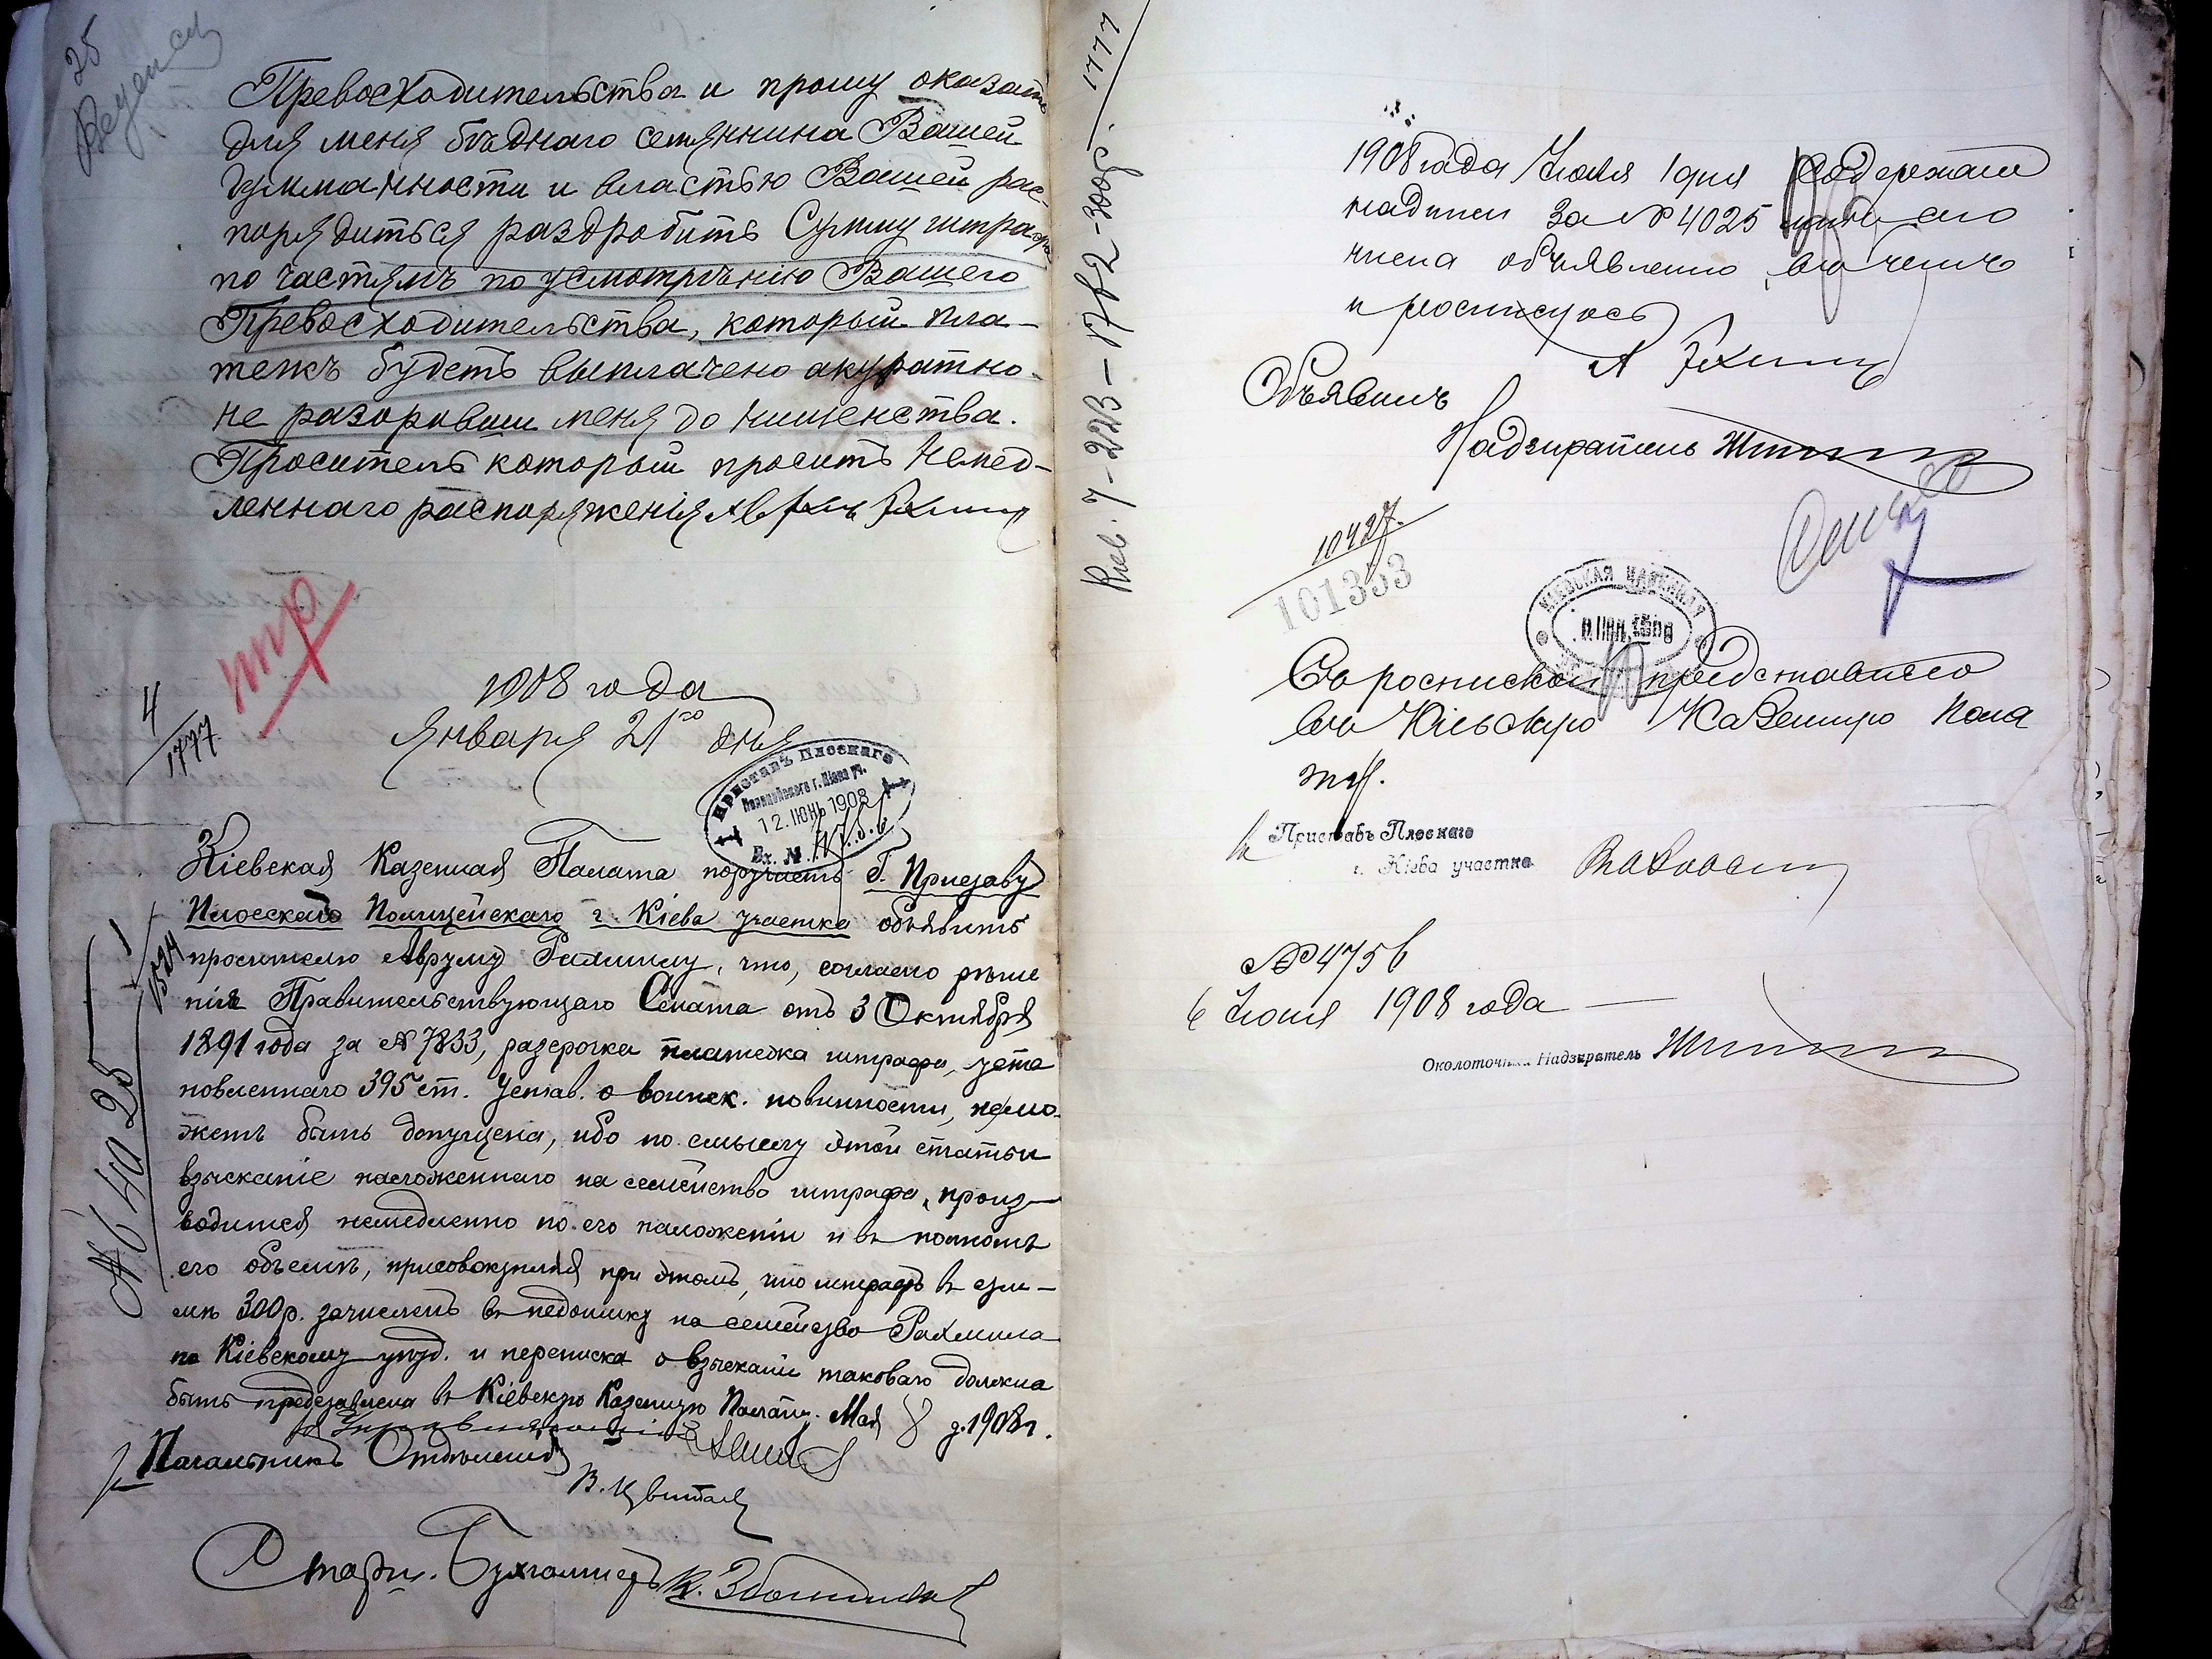 25
Превосходительства и прошу оказать
для меня бѣднаго семянина Вашей
гумманности и властью Вашей рас-
порядиться раздробить Сумму штрафа
по частямъ по усмотрѣнію Вашего
Превосходительства, который пла-
тежъ будетъ выплачено акуратно
не разоривши меня до нищенства.
Проситель который проситъ немед-
леннаго распоряженія
1908 года
Января 21го дня
4
1777
Приставъ Плоскаго
Полицейскаго г. Кіева уч.
12. ІЮНЬ 1908
Вх. №
Кіевская Казенная Палата поручаетъ Г. Приставу
Плосскаго Полицейскаго г. Кіева участка объявить
просителю Авруму Рахмилу, что, согласно рѣше
нія Правительствующаго Сената отъ 3 Октября
1891 года за № 7833, разсрочка платежа штрафа, уста
новленнаго 395 ст. Устав. о воинск. повинности, не мо-
жетъ быть допущена, ибо по смыслу этой статьи
взысканіе наложеннаго на семейство штрафа, произ-
водится немедленно по его наложеніи и въ полномъ
его объемѣ, присовокупляя при этомъ, что штрафъ въ сум-
мѣ 300 р. зачисленъ въ недоимку на семейство Рахмила
по Кіевскому уѣзд. и переписка о взысканіи таковаго должна
быть представлена въ Кіевскую Казенную Палату. Мая 8 д. 1908 г.
Управляющій
Начальникъ Отдѣленія
Старш. Бухгалтеръ
№ 4025
1777
1908 года Іюля 1 дня Содержаніе
надписи за № 4025 мнѣ сего
числа объявлено, въ чемъ
и росписуюсь
Объявилъ
Надзиратель
10427
101353
Съ роспискою представляю
въ Кіевскую Казенную Пала
ту.
Приставъ Плоскаго
г. Кіева участка
№ 4756
6 Іюля 1908 года
Околоточный Надзиратель